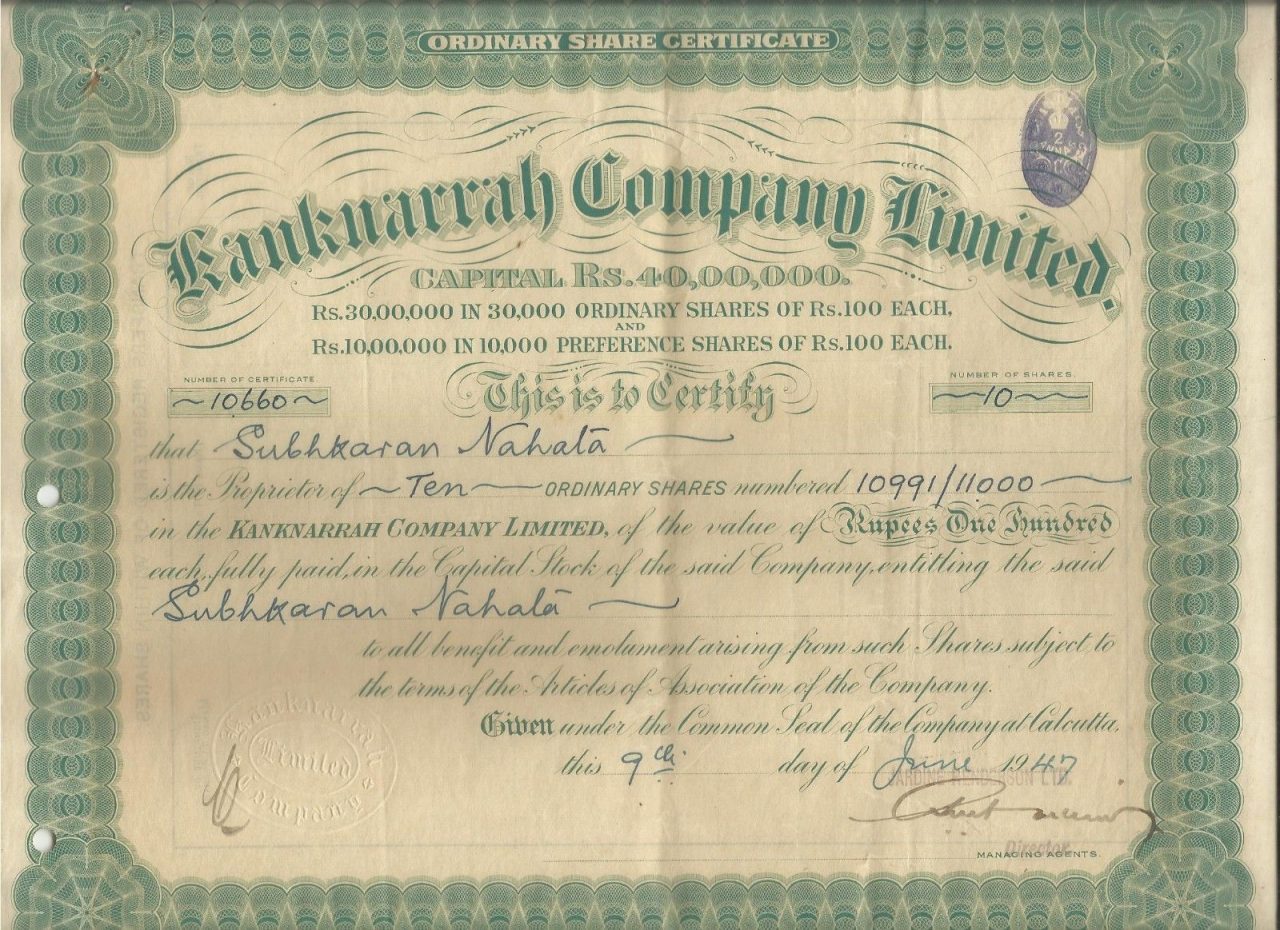 ORDINARY SHARE CERTIFICATE
Kanknarrah Company Limited.
CAPITAL Rs.40,00,000.
Rs.30,00,000 IN 30,000 ORDINARY SHARES OF Rs.100 EACH,
AND
Rs.10,00,000 IN 10,000 PREFERENCE SHARES OF Rs.100 EACH.
NUMBER OF CERTIFICATE
~10660~
This is to Certify
NUMBER OF SHARES.
~10~
that Subhkaran Nahata
is the Proprietor of ~Ten~ ORDINARY SHARES numbered 10991/11000
in the KANKNARRAH COMPANY LIMITED, of the value of Rupees One Hundred
each, fully paid, in the Capital Stock of the said Company, entitling the said
Subhkaran Nahata
to all benefit and emolument arising from such Shares subject to
the terms of the Articles of Association of the Company.
Given under the Common Seal of the Company at Calcutta,
this 9th day of June 1947
JARDINE HENDERSON LTD.
Director
MANAGING AGENTS.
Kanknarrah
Limited
Company